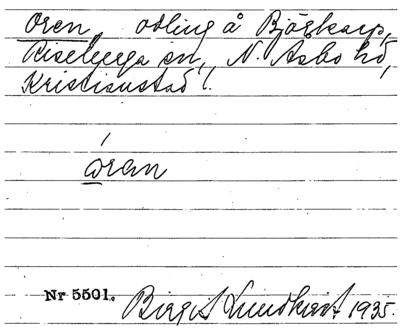 Oren, odling å Björkarp,
Riseberga sn, N. Åsbo hd,
Kristianstad l.
òren
Nr 5501. Birgit Lundkvist 1935.